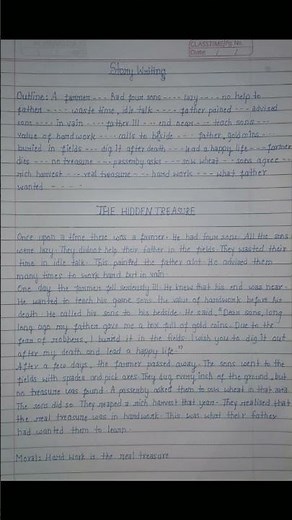 CLASSMATE No.
Date
Story Writing
Outline: A farmer --- had four sons ---- lazy ---- no help to
father ---- waste time, idle talk --- father pained --- advised
sons ---- in vain --- father ill --- end near --- teach sons --
value of handwork --- calls to bedside --- father, gold coins
buried in fields --- dig it after death --- lead a happy life --- farmer
dies --- no treasure --- passerby asks --- sow wheat -- sons agree --
rich harvest --- real treasure ---- hard work --- what father
wanted - - - -
THE HIDDEN TREASURE
Once upon a time there was a farmer. He had four sons. All the sons
were lazy. They didn't help their father in the fields. They wasted their
time in idle talk. This pained the father alot. He advised them
many times to work hard but in vain.
One day the farmer fell seriously ill. He knew that his end was near.
He wanted to teach his sons the value of handwork before his
death. He called his sons to his bedside. He said, "Dear sons, long
long ago my father gave me a box full of gold coins. Due to the
fear of robbers, I buried it in the fields. I wish you to dig it out
after my death and lead a happy life."
After a few days, the farmer passed away. The sons went to the
fields with spades and pick axes. They dug every inch of the ground, but
no treasure was found. A passerby asked them to sow wheat in that area.
The sons did so. They reaped a rich harvest that year. They realised that
the real treasure was in handwork. This was what their father
had wanted them to learn.
Moral: Hard work is the real treasure